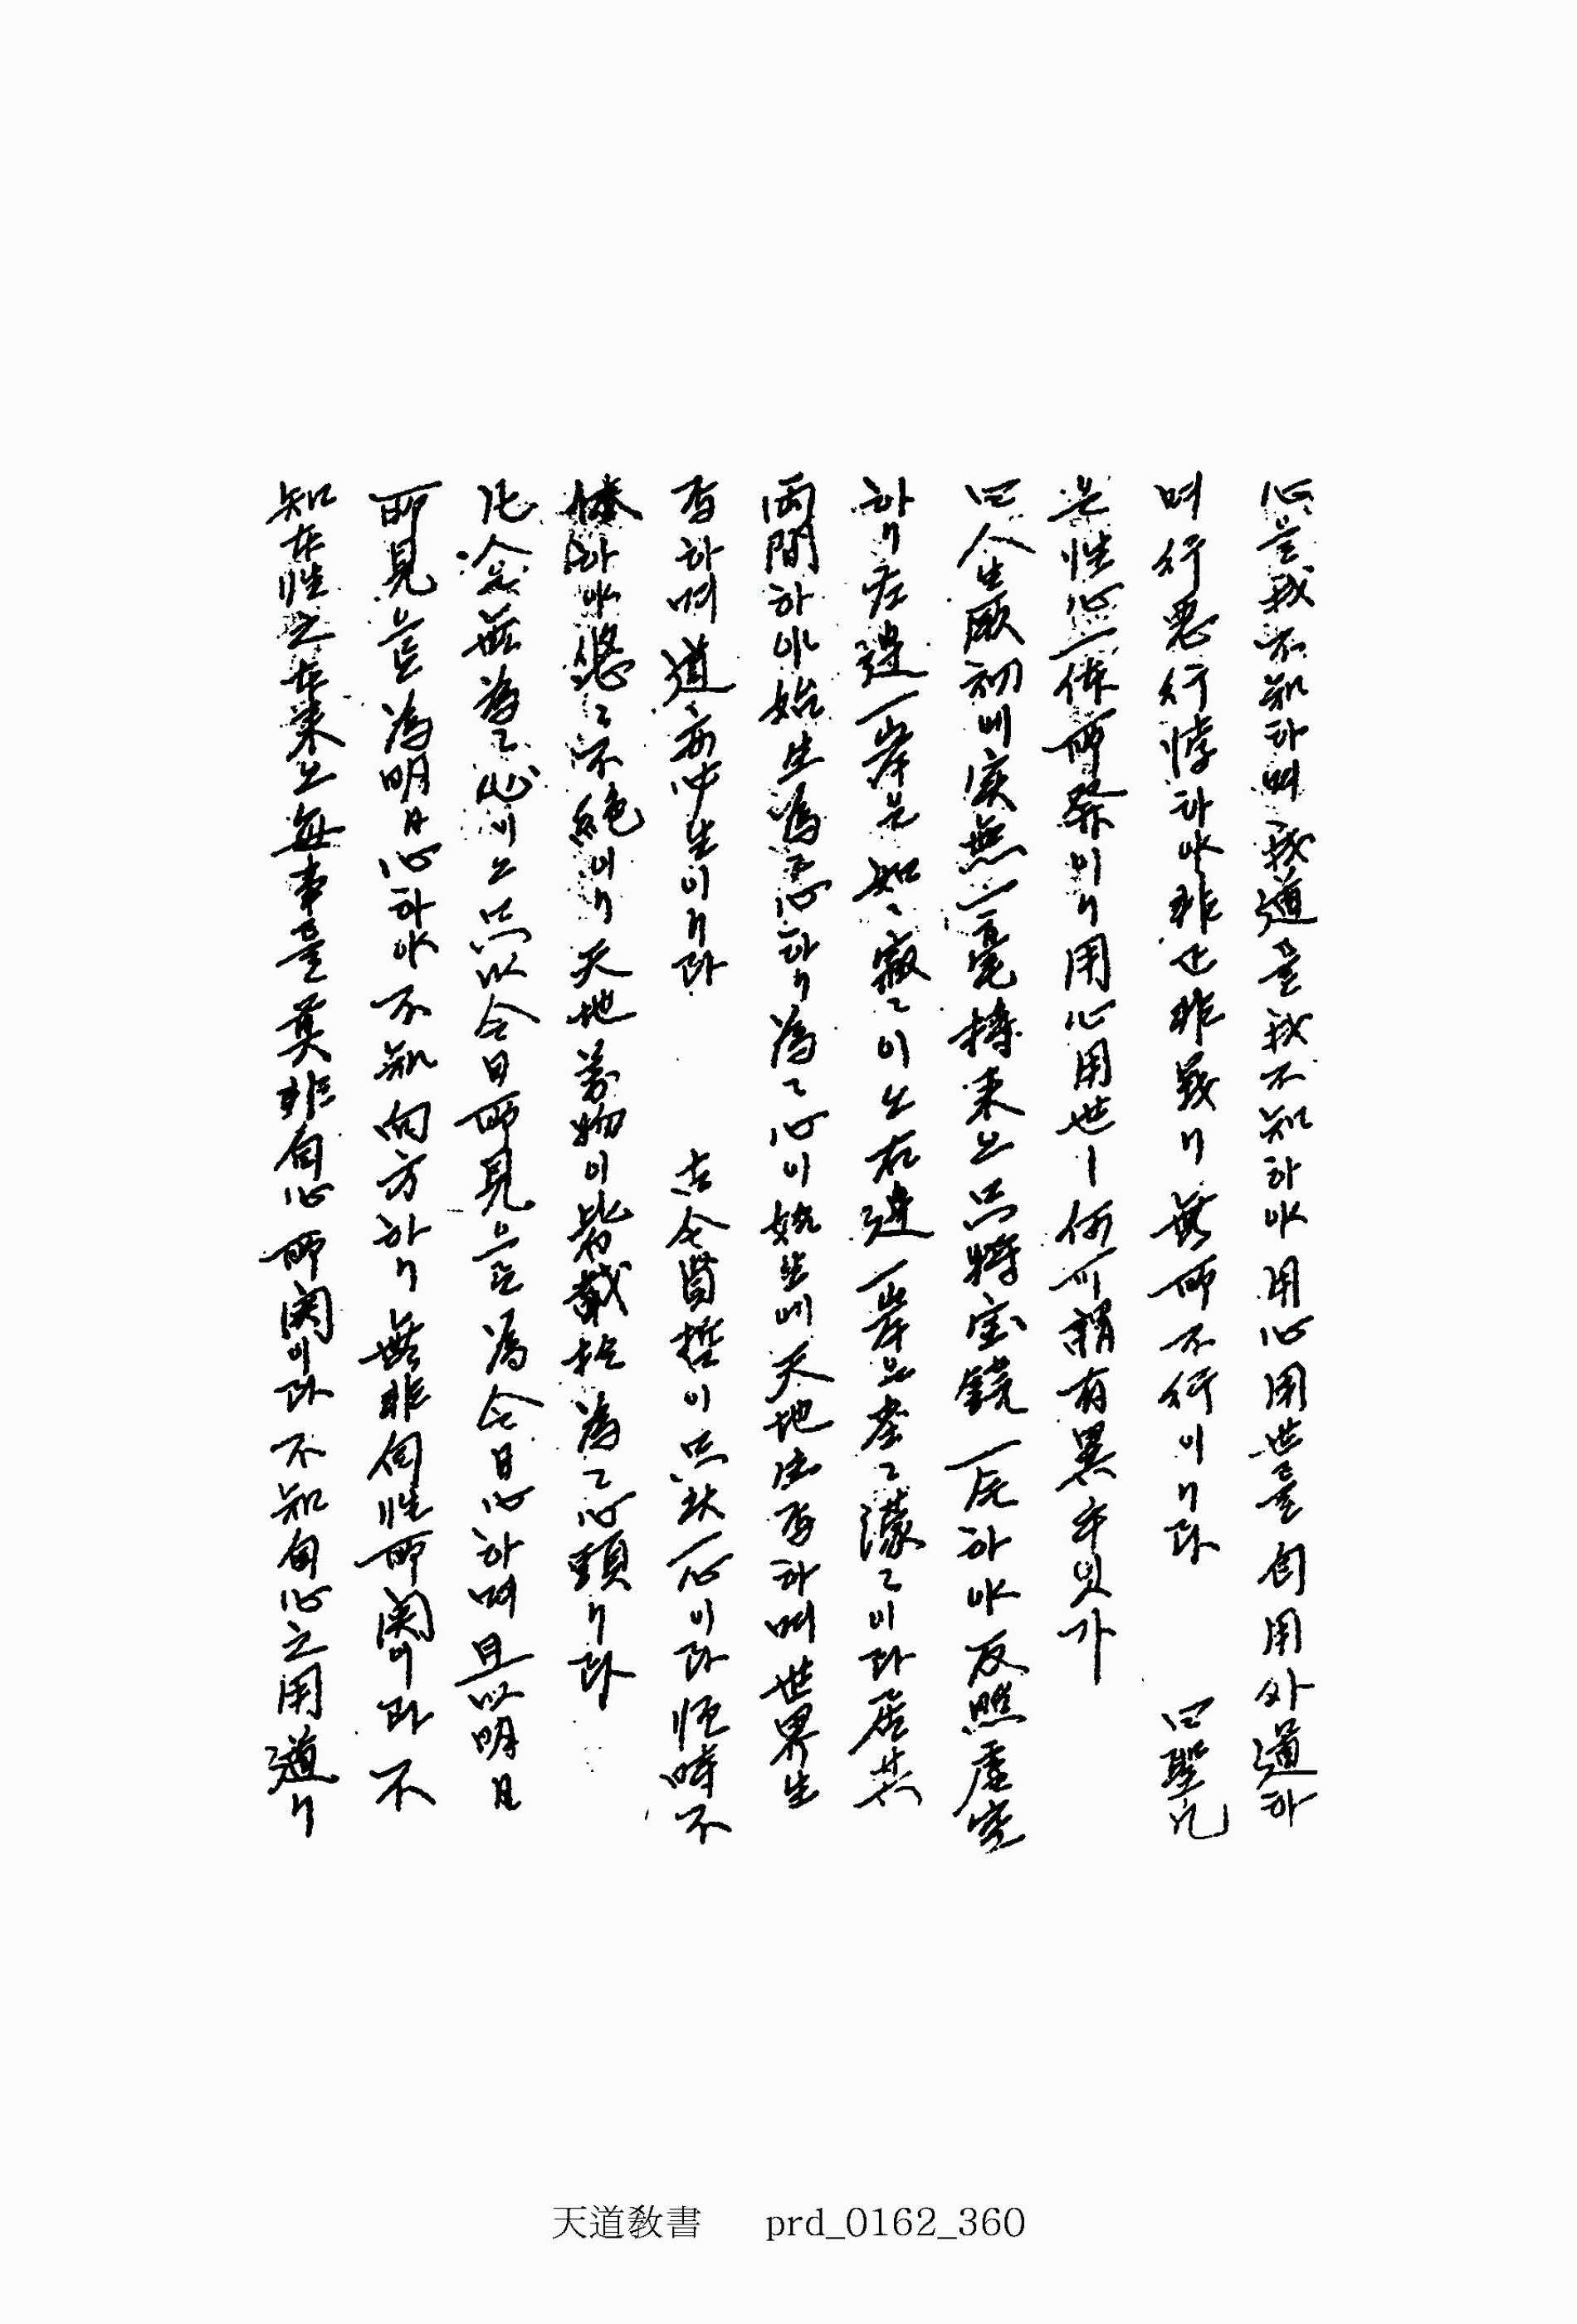 心을 我不知하며 我道를 我不知하야 用心用世를 自用外道하
며 行惡行悖하야 非正非義니 無所不行이니라 曰聖凡
은 性心一体所發이니 用心用世ㅣ 何可謂有異乎잇가
曰人生厥初에 實無一毫持來고 只將宝鏡一片하야 反照虛空
하니 左邊一岸은 如〻寂〻이오 右邊一岸은 塵〻濛〻이라 居其
兩間하야 始生爲爲心하니 爲〻心이 始生에 天地生焉하며 世界生
焉하며 道亦必生이니라 古今賢哲이 只此一心이라 恒時不
休하야 悠〻不絶이니 天地萬物이 皆載於爲〻心頭니라
凡念無爲〻心이오 只以今日所見으로 爲今日心하며 且以明日
所見으로 爲明日心하야 不知向方하니 無非自性所関이라 不
知在性之本來고 每事를 莫非自心所関이라 不知自心之用道니
天道敎書 prd_0162_360